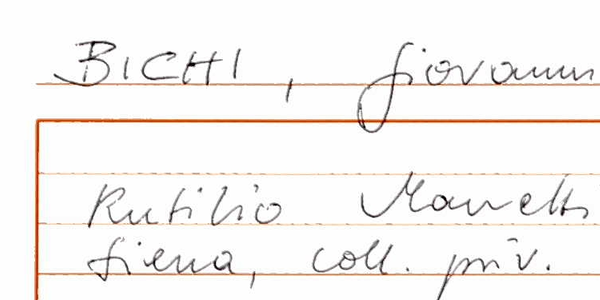 BICHI, Giovanni
Rutilio Manetti
Siena, coll. priv.